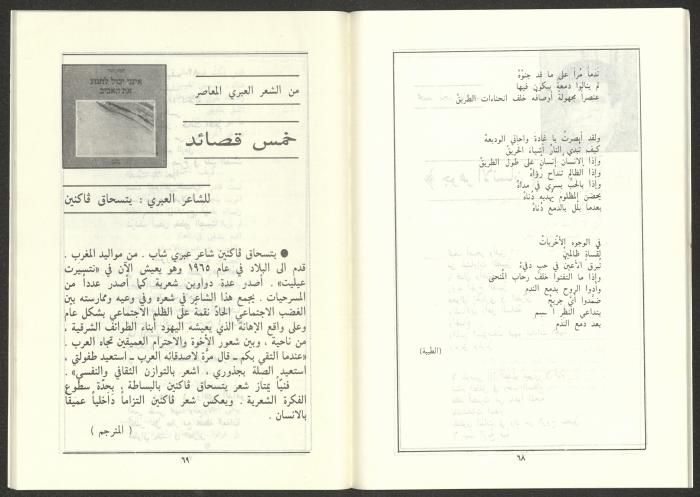 ندماً مُراً على ما قد جنوْهُ
لم ينالوا دمعةً يبكون فيها
عنصراً مجهولةً أوصافهُ خلف انحناءات الطريقْ
ولقد أبصرتُ يا غادة واحاتي الوديعهْ
كيف تبدي النارُ أشياءَ الحريقْ
وإذا الانسان إنسان على طول الطريقْ
وإذا الظالم تنداح رُؤاهُ
وإذا بالحبّ يسري في مداهُ
يحضن المظلوم يهديه دُناهُ
بعدما بلّل بالدمع دُناهُ
في الوجوه الأخرياتْ
لقساةٍ ظالمينْ
تبرق الأعين في حب دفيءْ
وإذا ما التفتوا خلف رحاب المنحنى
وأدوا الروح بدمع الندم
ضمّدوا أيّ جريحٌ
بتداعي النظر
بعد دمع الندم
(الطيبة)
٦٨
אינני יכול לחגוג
את האביב
من الشعر العبري المعاصر
خمس قصائد
للشاعر العبري : يتسحاق ڤاكنين
● يتسحاق ڤاكنين شاعر عبري شاب . من مواليد المغرب .
قدم الى البلاد في عام ١٩٦٥ وهو يعيش الآن في «نتسيرت
عيليت» . أصدر عدة دواوين شعرية كما أصدر عدداً من
المسرحيات . يجمع هذا الشاعر في شعره وفي وعيه وممارسته بين
الغضب الاجتماعي الحادّ نقمةً على الظلم الاجتماعي بشكل عام
وعلى واقع الإهانة الذي يعيشه اليهود أبناء الطوائف الشرقية ،
من ناحية ، وبين شعور الأخوة والاحترام العميقين تجاه العرب .
«عندما التقي بكم ــ قال مرّة لاصدقائه العرب ــ استعيد طفولتي ،
استعيد الصلة بجذوري ، اشعر بالتوازن الثقافي والنفسي» .
فنيّاً يمتاز شعر يتسحاق ڤاكنين بالبساطة ، بحدّة سطوع
الفكرة الشعرية . ويعكس شعر ڤاكنين التزاماً داخلياً عميقاً
بالانسان .
( المترجم )
٦٩